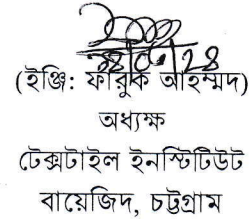 (ইঞ্জি: ফারুক আহম্মদ)
অধ্যক্ষ
টেক্সটাইল ইনস্টিটিউট
বায়েজিদ, চট্টগ্রাম